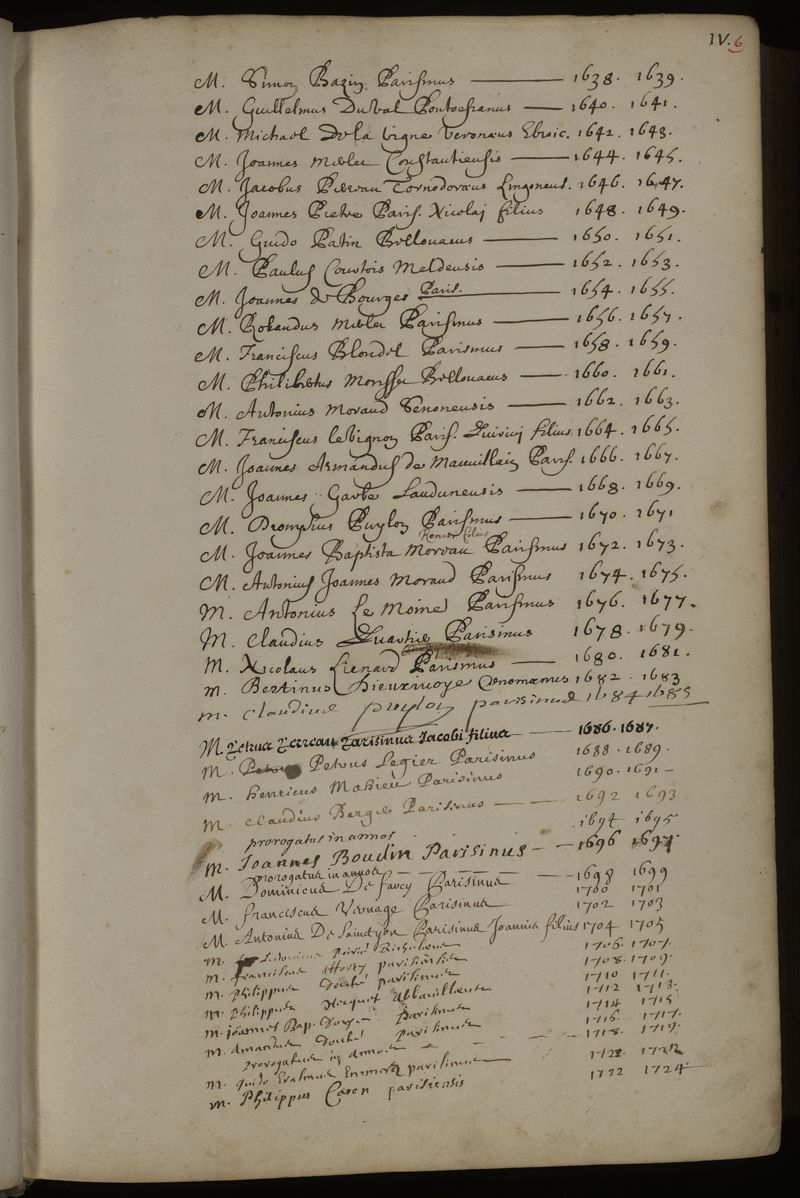 IV. 6
M. Simon Bazin Parisinus 1638. 1639.
M. Guillelmus Du Val Pontoesianus 1640. 1641.
M. Michael De la Vigne Vernonaeus Ebroic. 1642. 1643.
M. Joannes Merlet Constantiensis 1644. 1645.
M. Jacobus Perreau Tornodoraeus Lingonens. 1646. 1647.
M. Joannes Pietre Paris. Nicolaj filius 1648. 1649.
M. Guido Patin Bellouacus 1650. 1651.
M. Paulus Courtois Meldensis 1652. 1653.
M. Joannes de Bourges Paris. 1654. 1655.
M. Rolandus Merlet Parisinus 1656. 1657.
M. Franciscus Blondel Parisinus 1658. 1659.
M. Philibertus Morisset Bellouacus 1660. 1661.
M. Antonius Morand Senonensis 1662. 1663.
M. Franciscus le Vignon Paris. Quirini filius 1664. 1665.
M. Joannes Armandus de Mauvillain Paris. 1666. 1667.
M. Joannes Garbe Laudunensis 1668. 1669.
M. Dionysius Puylon Parisinus 1670. 1671
Renati filius
M. Joannes Baptista Moreau Parisinus 1672. 1673.
M. Antonius Joannes Morand Parisinus 1674. 1675.
M. Antonius Le Moine Parisinus 1676. 1677.
M. Claudius Quartier Parisinus 1678. 1679.
M. Nicolaus Lienard Parisinus 1680. 1681.
M. Bertinus Dieuxivoye Cenomanus 1682. 1683
M. Claudius Puylon parisinus 1684 1685
M. Petrus Perreau Parisinus Jacobi filius 1686. 1687.
M. Petrus Legier Parisinus 1688. 1689.
M. henricus Mahieu Parisinus 1690. 1691
M. Claudius Berger Parisinus 1692 1693
prorogatus in annos 1694 1695
M. Joannes Boudin Parisinus 1696 1697
prorogatus in annos 1698 1699
M. Dominicus De farcy Parisinus 1700 1701
M. franciscus Vernage Parisinus 1702 1703
M. Antonius De Sainctyon Parisinus Joannis filius 1704 1705
M. 1706. 1707.
M. franciscus Afforty parisinus 1708. 1709.
M. Philippus Douté parisinus 1710 1711.
M. Philippus Hecquet Abbavillaeus 1712 1713.
M. joannes Bap. Doye Parisinus 1714 1715
M. Armandus Douté Parisinus 1716. 1717.
prorogatus in annos 1718. 1719.
M. Guido Erasmus Emmerez parisinus
M. Philippus Caron parisiensis 1722 1724